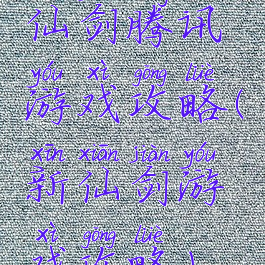 仙剑腾讯
yóu xì gōng lüè
游戏攻略(
xīn xiān jiàn yóu
新仙剑游
xì gōng lüè
戏攻略)